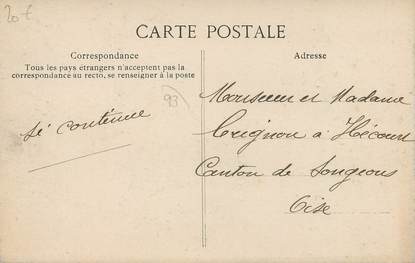 20 €
CARTE POSTALE
Correspondance
Tous les pays étrangers n'acceptent pas la
correspondance au recto, se renseigner à la poste
Adresse
93
sé contenue
Monsieur et Madame
Crignon à Hécourt
Canton de Songeons
Oise